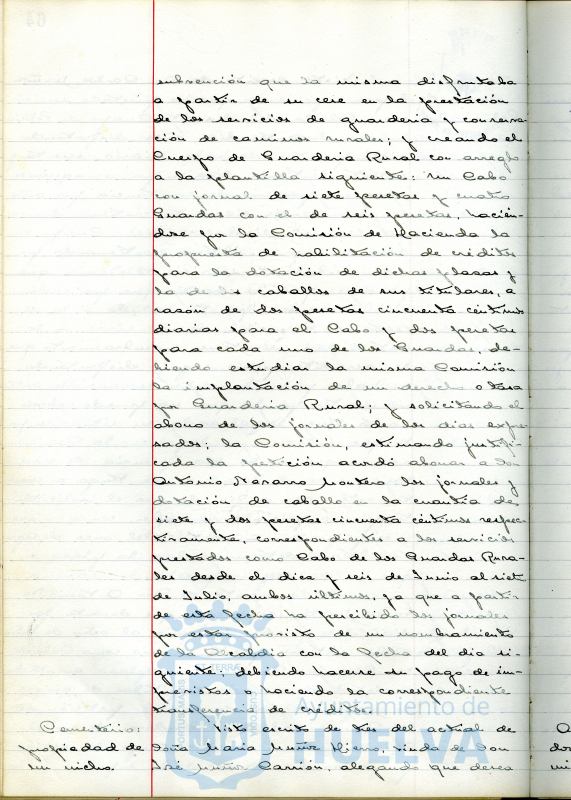 subvención que la misma disfrutaba
a partir de su cese en la prestación
de los servicios de guardería y conserva-
ción de caminos rurales; y creando el
Cuerpo de Guardería Rural con arreglo
a la plantilla siguiente: un Cabo
con jornal de siete pesetas y cuatro
Guardas con el de seis pesetas, hacién-
dose por la Comisión de Hacienda la
propuesta de habilitación de créditos
para la dotación de dichas plazas y
la de los caballos de sus titulares, a
razón de dos pesetas cincuenta céntimos
diarias para el Cabo y dos pesetas
para cada uno de los Guardas, de-
biendo estudiar la misma Comisión
la implantación de un derecho o tasa
por Guardería Rural; y solicitando el
abono de los jornales de los días expre-
sados; la Comisión, estimando justifi-
cada la petición acordó abonar a Don
Antonio Navarro Montero los jornales y
dotación de caballo en la cuantía de
siete y dos pesetas cincuenta céntimos respec-
tivamente, correspondientes a los servicios
prestados como Cabo de los Guardas Rura-
les desde el diez y seis de Junio al siete
de Julio, ambos últimos, ya que a partir
de esta fecha ha percibido los jornales
por estar provisto de un nombramiento
de la Alcaldía con la fecha del día si-
guiente; debiendo hacerse su pago de im-
previstos o haciendo la correspondiente
transferencia de créditos.
Cementerio: Visto escrito de tres del actual de
propiedad de Doña María Muñoz Hierro, viuda de Don
un nicho. José Muñoz Carrión, alegando que desea
Ayuntamiento de
HUELVA